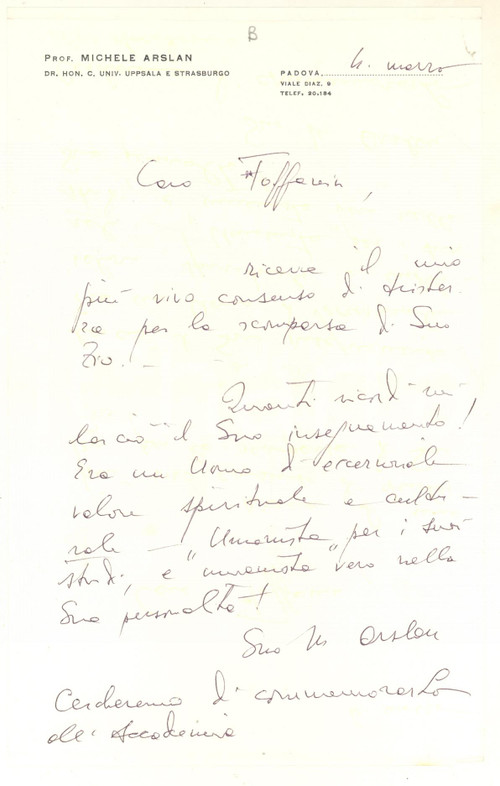 B
PROF. MICHELE ARSLAN
DR. HON. C. UNIV. UPPSALA E STRASBURGO
PADOVA, 4. marzo
VIALE DIAZ. 9
TELEF. 20.184
Caro Toffanin,
riceva il mio
più vivo consenso di tristez-
za per la scomparsa di Suo
Zio! -
Quanti ricordi mi
lasciò il Suo insegnamento!
Era un Uomo d'eccezionale
valore spirituale e cultu-
rale - "Umanista" per i suoi
studi, e "umanista" vero nella
Sua personalità!
Suo M Arslan
Cercheremo di commemorarLo
all'Accademia